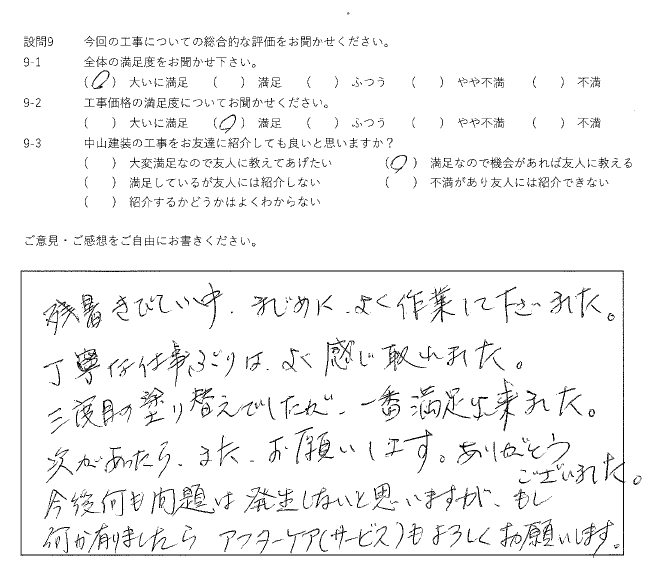 設問9 今回の工事についての総合的な評価をお聞かせください。
9-1 全体の満足度をお聞かせ下さい。
(○) 大いに満足 ( ) 満足 ( ) ふつう ( ) やや不満 ( ) 不満
9-2 工事価格の満足度についてお聞かせください。
( ) 大いに満足 (○) 満足 ( ) ふつう ( ) やや不満 ( ) 不満
9-3 中山建装の工事をお友達に紹介しても良いと思いますか?
( ) 大変満足なので友人に教えてあげたい (○) 満足なので機会があれば友人に教える
( ) 満足しているが友人には紹介しない ( ) 不満があり友人には紹介できない
( ) 紹介するかどうかはよくわからない
ご意見・ご感想をご自由にお書きください。
残暑きびしい中、まじめに、よく作業して下さいました。
丁寧な仕事ぶりは、よく感じ取れました。
三度目の塗り替えでしたが、一番満足出来ました。
次があったら、また、お願いします。ありがとう
ございました。
今後何も問題は発生しないと思いますが、もし
何か有りましたら アフターケア(サービス)もよろしくお願いします。